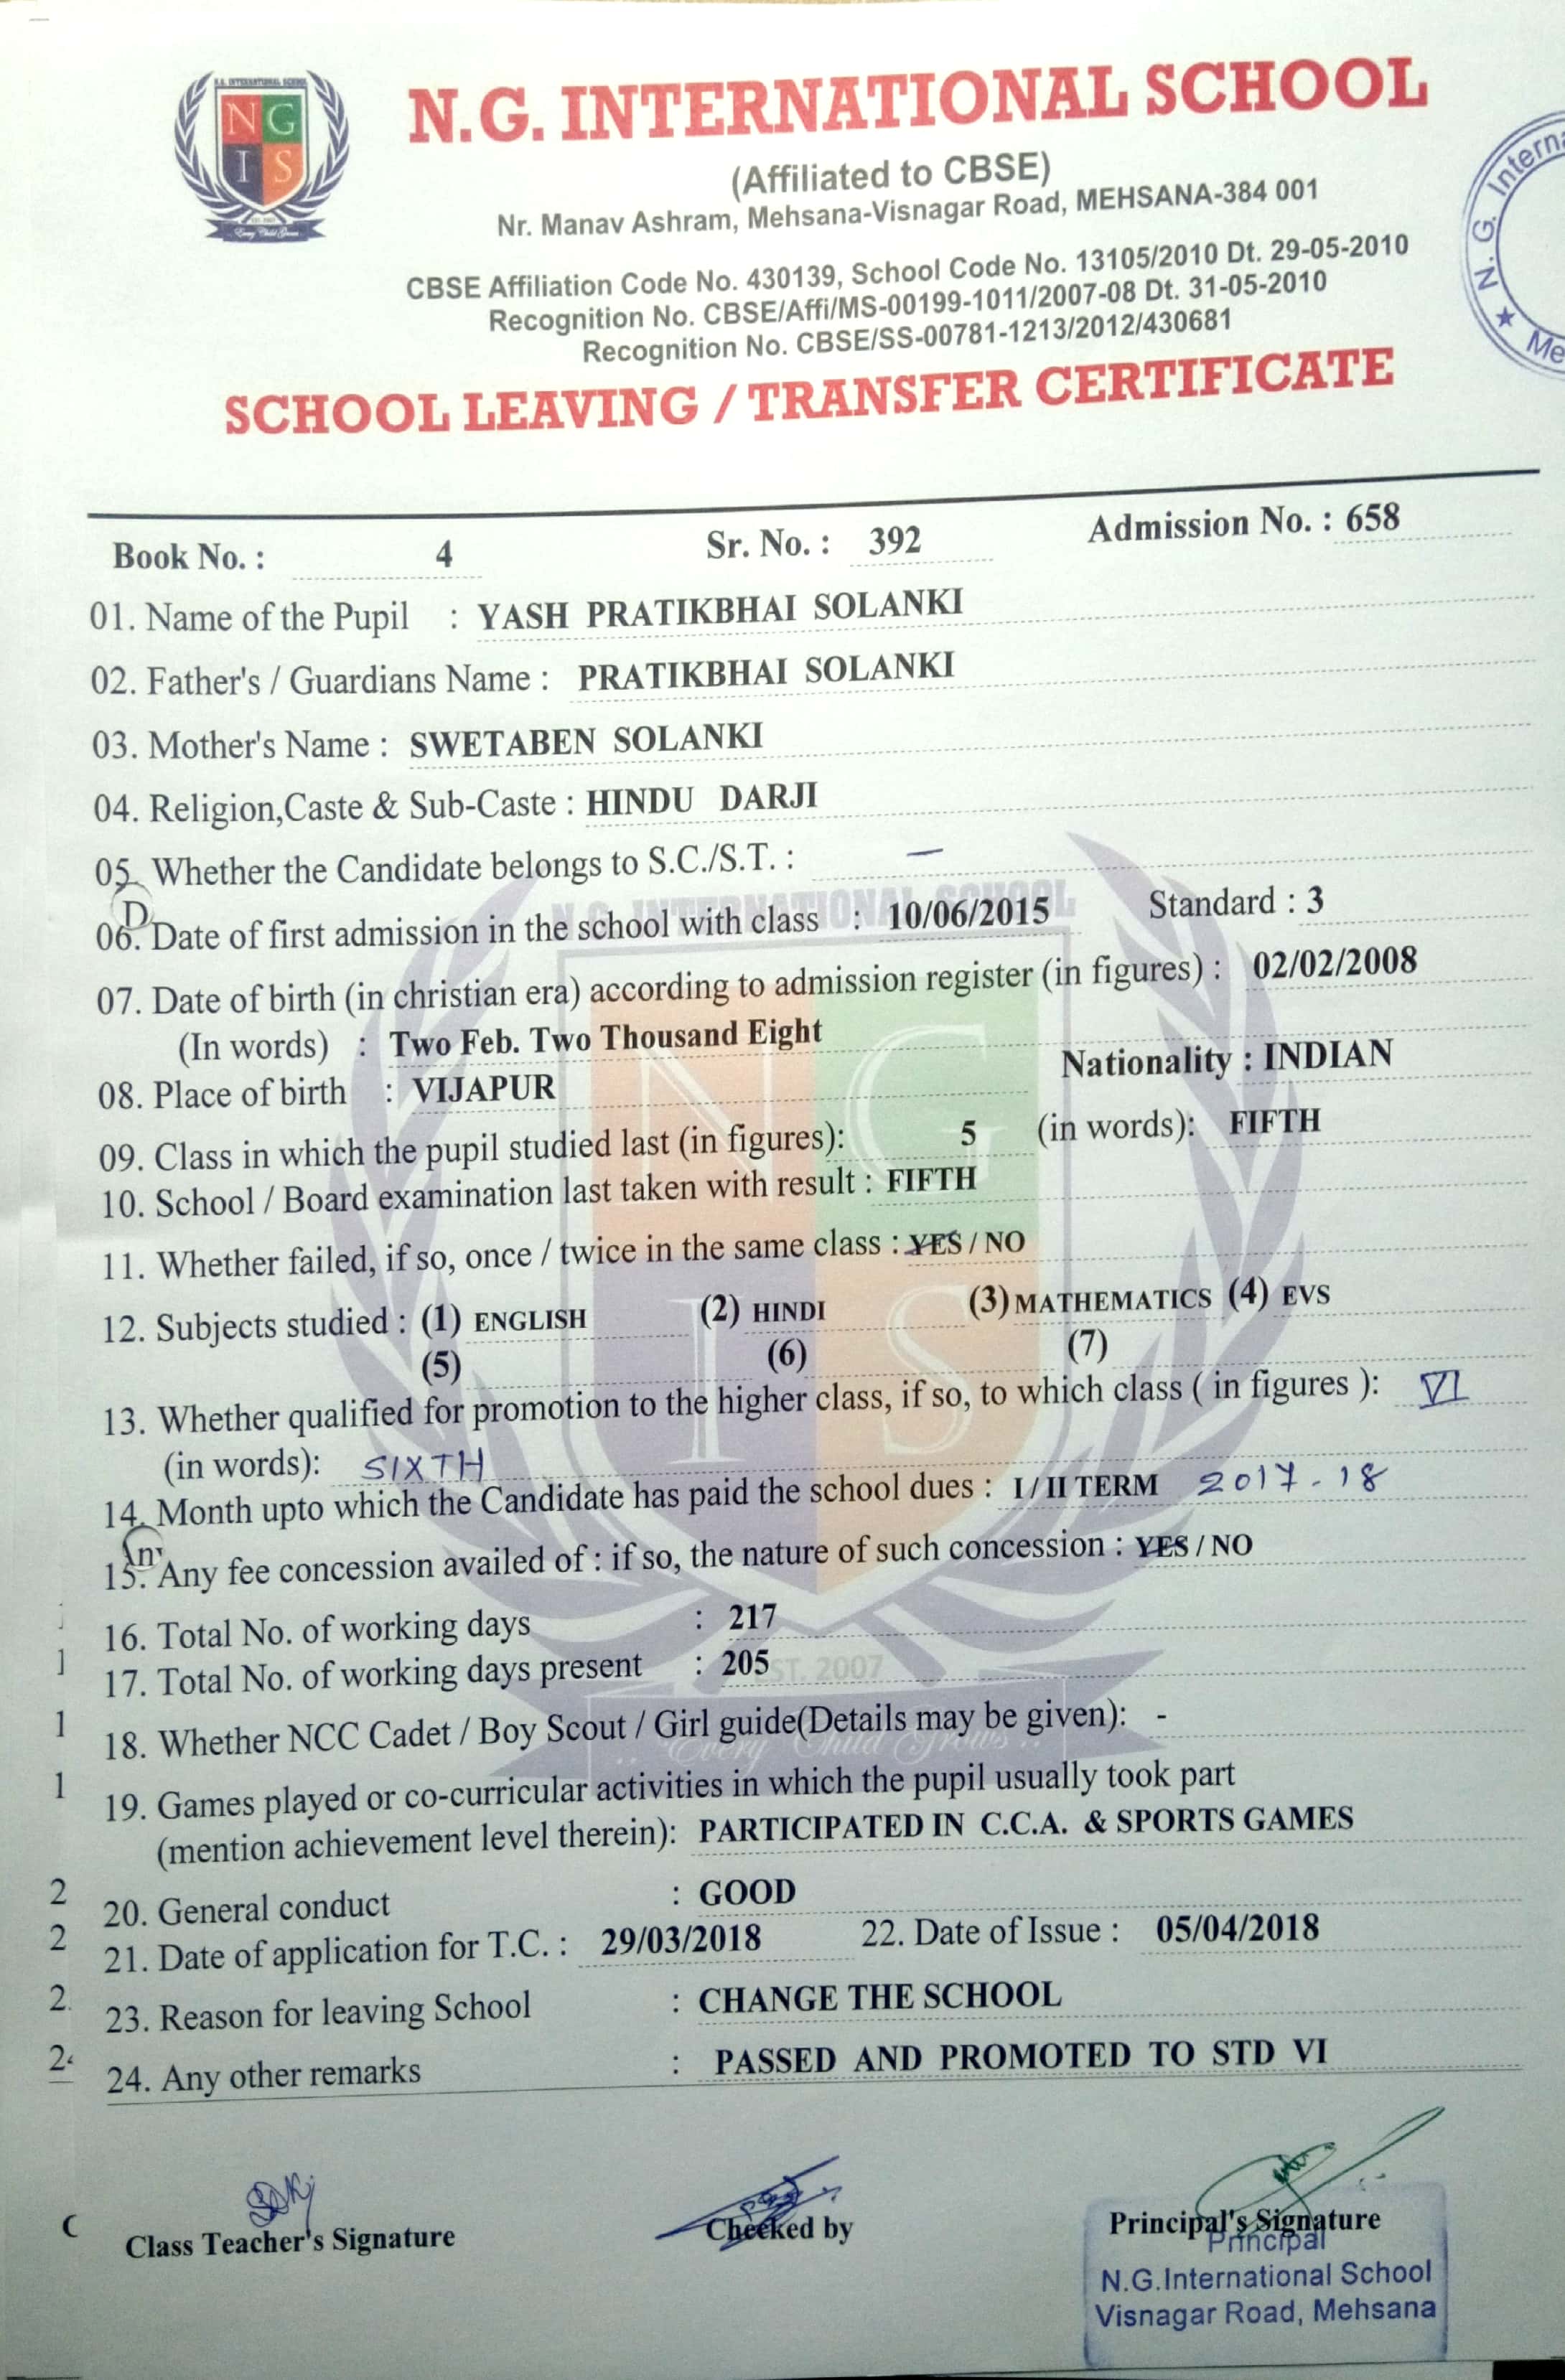 N.G. INTERNATIONAL SCHOOL
NG
IS
Every Child Grows
N.G. INTERNATIONAL SCHOOL
(Affiliated to CBSE)
Nr. Manav Ashram, Mehsana-Visnagar Road, MEHSANA-384 001
CBSE Affiliation Code No. 430139, School Code No. 13105/2010 Dt. 29-05-2010
Recognition No. CBSE/Affi/MS-00199-1011/2007-08 Dt. 31-05-2010
Recognition No. CBSE/SS-00781-1213/2012/430681
★ N. G. Interna
Me
SCHOOL LEAVING / TRANSFER CERTIFICATE
Book No. : 4 Sr. No. : 392 Admission No. : 658
01. Name of the Pupil : YASH PRATIKBHAI SOLANKI
02. Father's / Guardians Name : PRATIKBHAI SOLANKI
03. Mother's Name : SWETABEN SOLANKI
04. Religion,Caste & Sub-Caste : HINDU DARJI
05. Whether the Candidate belongs to S.C./S.T. : —
N.G. INTERNATIONAL SCHOOL
06. Date of first admission in the school with class : 10/06/2015 Standard : 3
07. Date of birth (in christian era) according to admission register (in figures) : 02/02/2008
(In words) : Two Feb. Two Thousand Eight
08. Place of birth : VIJAPUR Nationality : INDIAN
09. Class in which the pupil studied last (in figures): 5 (in words): FIFTH
10. School / Board examination last taken with result : FIFTH
11. Whether failed, if so, once / twice in the same class : YES / NO
12. Subjects studied : (1) ENGLISH (2) HINDI (3) MATHEMATICS (4) EVS
(5) (6) (7)
13. Whether qualified for promotion to the higher class, if so, to which class ( in figures ): VI
(in words): SIXTH
14. Month upto which the Candidate has paid the school dues : I / II TERM 2017-18
15. Any fee concession availed of : if so, the nature of such concession : YES / NO
16. Total No. of working days : 217
17. Total No. of working days present : 205
EST. 2007
18. Whether NCC Cadet / Boy Scout / Girl guide(Details may be given): -
.: Every Child Grows :.
19. Games played or co-curricular activities in which the pupil usually took part
(mention achievement level therein): PARTICIPATED IN C.C.A. & SPORTS GAMES
20. General conduct : GOOD
21. Date of application for T.C. : 29/03/2018 22. Date of Issue : 05/04/2018
23. Reason for leaving School : CHANGE THE SCHOOL
24. Any other remarks : PASSED AND PROMOTED TO STD VI
Class Teacher's Signature Checked by Principal's Signature
Principal
N.G.International School
Visnagar Road, Mehsana